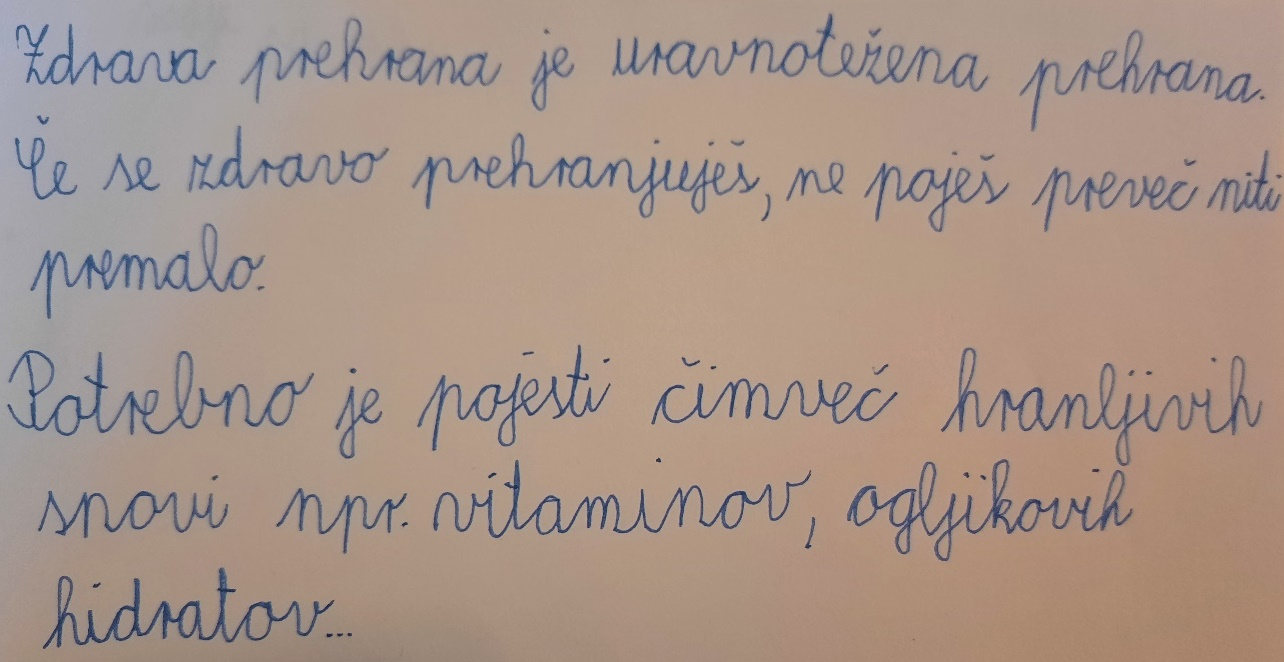 Zdrava prehrana je uravnotežena prehrana.
Če se zdravo prehranjuješ, ne poješ preveč niti
premalo.
Potrebno je pojesti čimveč hranljivih
snovi npr. vitaminov, ogljikovih
hidratov...